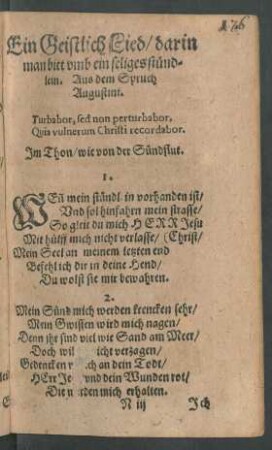 176
Ein Geistlich Lied / darin
man bitt vmb ein seliges stünd-
lein. Aus dem Spruch
Augustini.
Turbabor, sed non perturbabor.
Quia vulnerum Christi recordabor.
Im Thon / wie von der Sündflut.
1.
WEñ mein stündl in vorhanden ist /
Vnd sol hinfahrn mein strasse /
So gleit du mich HERR Jesu
Mit hülff mich nicht verlasse / (Christ /
Mein Seel an meinem letzten end
Befehl ich dir in deine Hend /
Du wolst sie mir bewahren.
2.
Mein Sünd mich werden krencken sehr /
Mein Gwissen wird mich nagen /
Denn jhr sind viel wie Sand am Meer /
Doch wil icht verzagen /
Gedencken ch an dein Todt /
HErr Je vnd dein Wunden rot /
Die rden mich erhalten.
N iij Ich